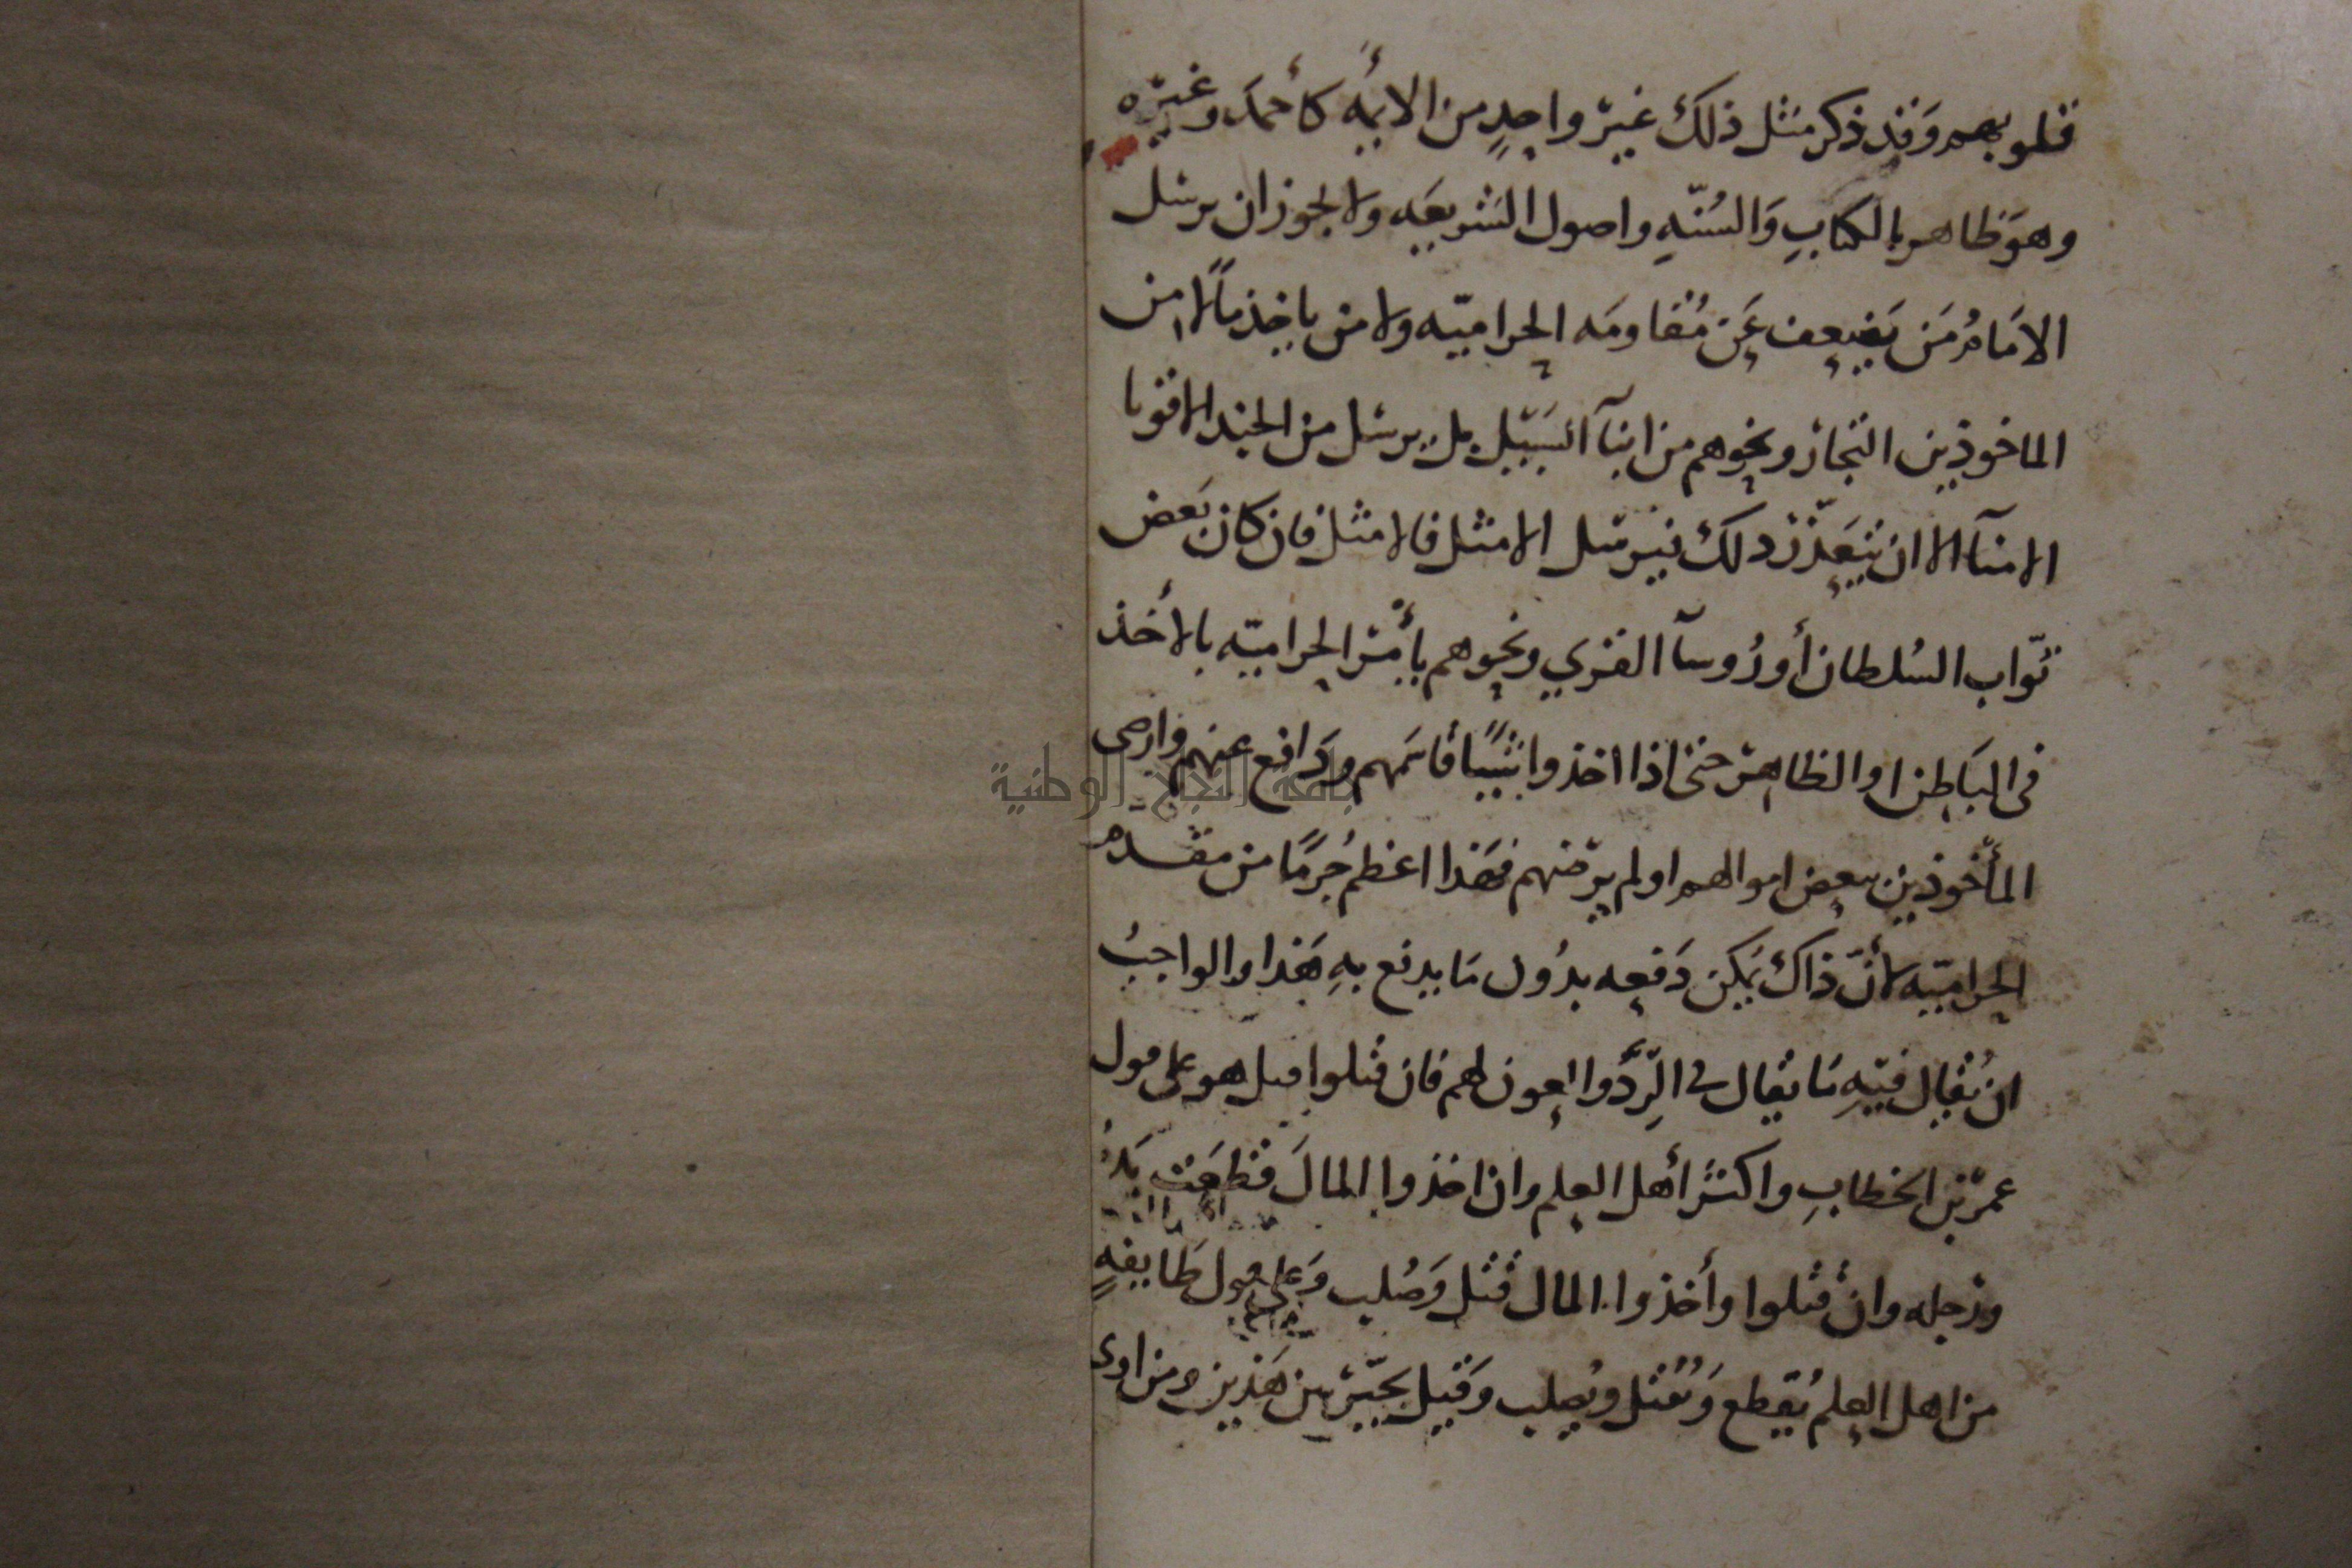 قلوبهم وَقد ذكر مثل ذلك غير واحدٍ من الايمه كأحمد وغيره
وهوَ ظاهر بالكتابِ وَالسُنّهِ واصول الشريعَه ولا يجوز ان يرسل
الامَامُ مَن يَضعف عَن مُقاومَه الحراميّه ولا من ياخذ مالًا من
الماخوذين التجار ونحوهم من ابنآ السَبيل بل يرسل من الجند الاقويا
الامنآ الا ان يتعَذّر ذلك فيرسل الامثل فالامثل فان كان بَعض
نُوّاب السُلطان أو رُوسآ القري ونحوهم يأمر الحراميّه بالأخذ
فى البَاطن او الظاهر حتى اذا اخذوا شيًا قاسَمهم ودَافع عنهم وارضى
المأخوذين ببعض اموالهم او لم يرضهم فهَذا اعظم جُرمًا من مقدم
الحراميّه لأنّ ذاك يمكن دَفعه بدُون مَا يدفع بهِ هَذا والواجبُ
ان يُقال فيهِ مَا يقال فى الرِّدْو العون لهم فان قَتلوا قتل هو على قول
عمر بن الخطابِ واكثر أهل العلم وان اخذوا المالَ قطعَت يَدُه
ورجله وان قَتلوا وأخذوا المال قُتل وَصُلب وَعلى قول طَايفهٍ
من اهل العلم يُقطع وَيُقتل ويُصلب وَقيل يخيّر بين هَذين ومن اوى
جامعة النجاح الوطنية